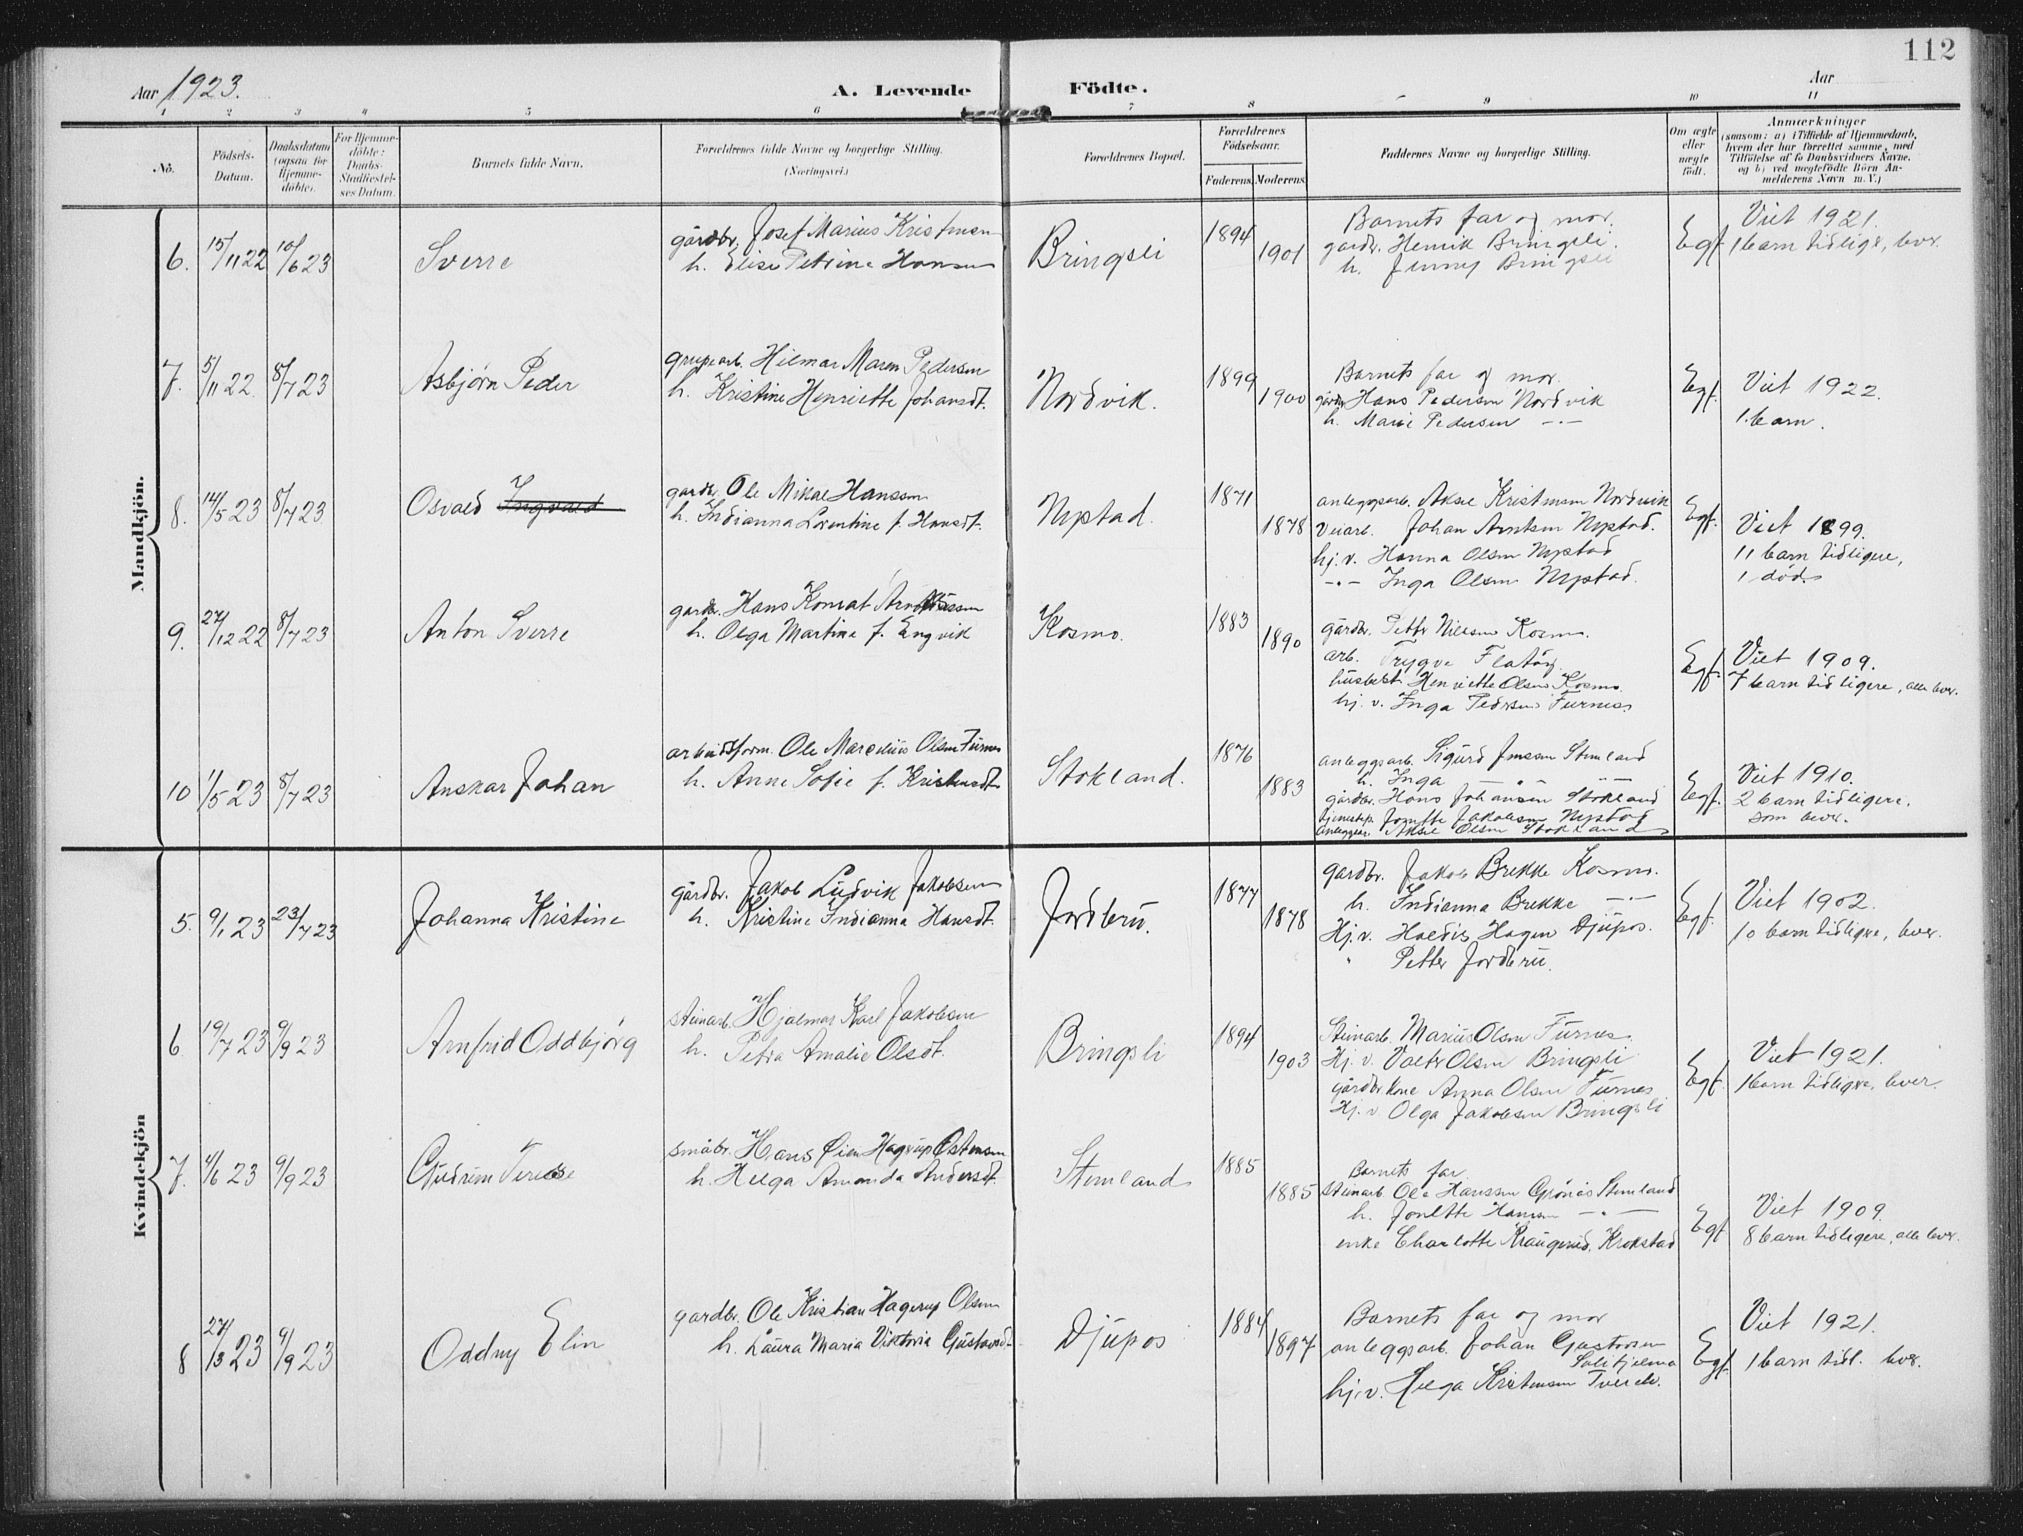 112
Aar 1923.
A. Levende Födte.
Aar
1 2 3 4 5 6 7 8 9 10 11
No.
Födsels-
Datum.
Daabsdatum
(ogsaa for
Hjemme-
döbte).
For Hjemme-
döbte:
Daabs-
Stadfæstel-
ses Datum.
Barnets fulde Navn.
Forældrenes fulde Navne og borgerlige Stilling.
(Næringsvei.)
Forældrenes Bopæl.
Forældrenes
Födselsaar.
Faderens.
Moderens.
Faddernes Navne og borgerlige Stilling.
Om ægte
eller
uægte
födt.
Anmærkninger
(saasom: a) i Tilfælde af Hjemmedaab,
hvem der har forrettet samme, med
Tilföielse af to Daabsvidners Navne,
og b) ved uægtefödte Börn An-
melderens Navn m. V.)
Mandkjön.
6. 15/11 22 10/6 23 Sverre
gårdbr. Josef Marius Kristensen
h. Elise Petrine Hansen
Bringsli 1894 1901
Barnets far og mor.
gardbr. Henrik Bringsli.
h. Jenny Bringsli
Egf.
Viet 1921.
1 barn tidlige, lever.
7. 5/11 22. 8/7 23 Asbjørn Peder
grubearb. Hilmar Maren Pedersen
h. Kristine Henriette Johansdt.
Nordvik. 1899 1900
Barnets far og mor.
gårdbr Hans Pedersen Nordvik
h. Marie Pedersen -"-
Egf.
Viet 1922.
1. barn.
8. 14/5 23 8/7 23 Osvald Ingvald
gardbr. Ole Mikal Hanssen
h. Indianna Lorentine f. Hansdt.
Nystad. 1871 1878
anleggsarb. Aksel Kristensen Nordvik
Veiarb. Johan Arntsen Nystad.
hj. v. Hanna Olsen Nystad
-"- Inga Olsen Nystad.
Egf.
Viet 1899.
11 barn tidligere,
1 død
9. 27/12 22 8/7 23 Anton Sverre
gardbr. Hans Konrat
h. Olga Martine f. Engvik
Kosmo. 1883 1890
gårdbr. Petter Nilssen Kosmo.
arb. Trygve
husbest. Henriette Olsen Kosmo
hj. v. Inga Pedersen Furnes
Egf.
Viet 1909.
7 barn tidligere, alle lever.
10 1/5 23 8/7 23 Anskar Johan
arbeidsform. Ole Marselius Olsen Furnes
h. Anne Sofie f. Kristensdt.
Stokland. 1876 1883
anleggsarb. Sigurd Jenssen Stemland
h. Inga -"-
gårdbr. Hans Johansen Stokland
tjenestep. Jonette Jakobsen Nystad
anleggsarb. Aksel Olsen Stokland
Egf.
Viet 1910.
2 barn tidligere.
som lever.
Kvindekjön
5. 9/1 23 23/7 23 Johanna Kristine
gårdbr. Jakob Ludvik Jakobsen
h. Kristine Indianna Hansdt.
Jordbru. 1877 1878
gardbr. Jakob Brekke Kosmo.
h. Indianna Brekke -"-
Hj. v. Haldis Hagen Djupos.
" Petter Jordbru.
Egf.
Viet 1902.
10 barn tidligere, lever.
6 19/7 23 9/9 23 Arnfrid Oddbjørg
steinarb. Hjalmar Karl Jakobsen
h. Petra Amalie Olsdt.
Bringsli 1894 1903
Steinarb. Marius Olsen Furnes
Hj. v. Valter Olsen Bringsli
gårdbrkone Anna Olsen Furnes
Hj. v Olga Jakobsen Bringsli
Egf.
Viet 1921.
1 barn tidligere, lever.
7. 4/6 23 9/9 23 Gudrun Terese
småbr. Hans Øien Hagerup Østensen
h. Helga Amanda Andersdt.
Stemland 1885 1885
Barnets far
steinarb Ole Hanssen Grønås Stemland
h. Jonette Hansen -"-
enke Charlotte Krokstad
Egf
Viet 1909.
8 barn tidligere, alle lever.
8 27/3 23 9/9 23 Oddny Elin
gardbr. Ole Kristian Hagerup Olsen
h. Laura Maria Viktoria Gustavsd.
Djupos 1884 1897
Barnets far og mor
anleggsarb. Johan Gustavsen
Sulitjelma
hj. v. Helga Kristensen
Egf.
Viet 1921.
1 barn tidl. lever.